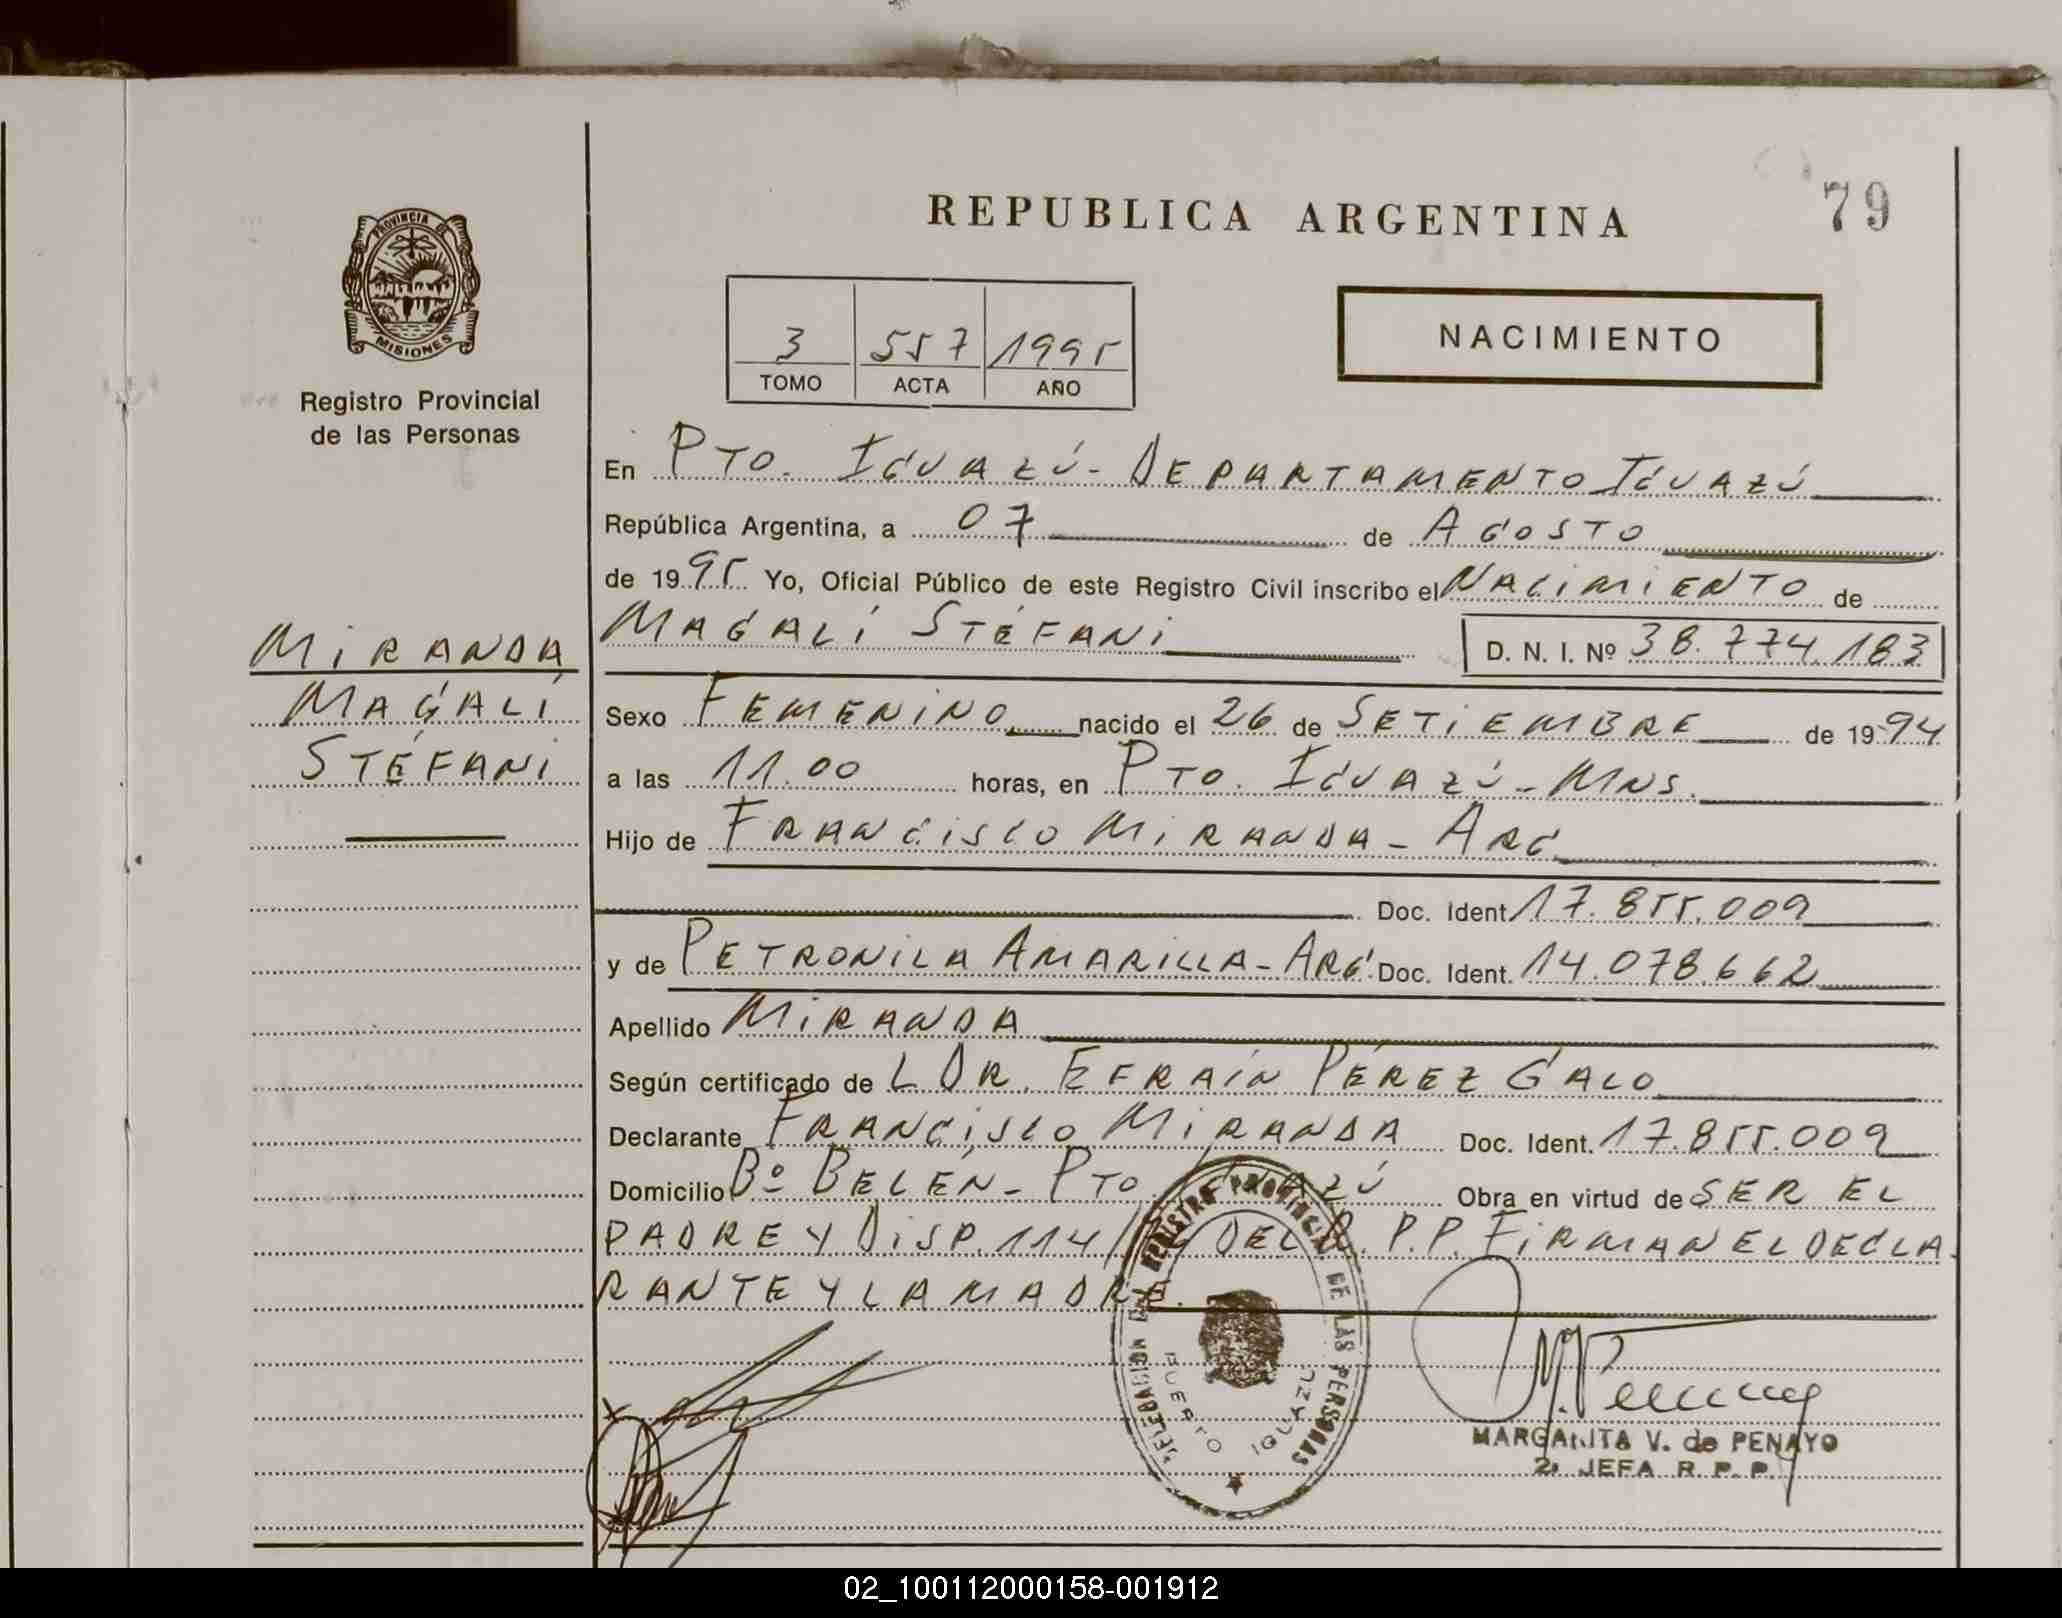 REPUBLICA ARGENTINA
79
PROVINCIA DE
MISIONES
Registro Provincial
de las Personas
3 557 1995
TOMO ACTA AÑO
NACIMIENTO
En PTO. IGUAZÚ - DEPARTAMENTO IGUAZÚ
República Argentina, a 07 de AGOSTO
de 1995 Yo, Oficial Público de este Registro Civil inscribo el NACIMIENTO de
MAGALÍ STÉFANI D. N. I. Nº 38.774.183
MIRANDA
MAGALÍ
STÉFANI
Sexo FEMENINO nacido el 26 de SETIEMBRE de 1994
a las 11.00 horas, en PTO. IGUAZÚ - MNS.
Hijo de FRANCISCO MIRANDA - ARG
Doc. Ident 17.855.009
y de PETRONILA AMARILLA - ARG. Doc. Ident. 14.078.662
Apellido MIRANDA
Según certificado de L DR. EFRAÍN PÉREZ GALO
Declarante FRANCISCO MIRANDA Doc. Ident. 17.855.009
Domicilio Bº BELÉN - PTO IGUAZÚ Obra en virtud de SER EL
PADRE Y DISP. 114/ DEL R. P.P. FIRMAN EL DECLA
RANTE Y LA MADRE.
DELEGACION DEL REGISTRO PROVINCIAL DE LAS PERSONAS
PUERTO IGUAZU
MARGARITA V. de PENAYO
2a JEFA R. P. P.
02_100112000158-001912